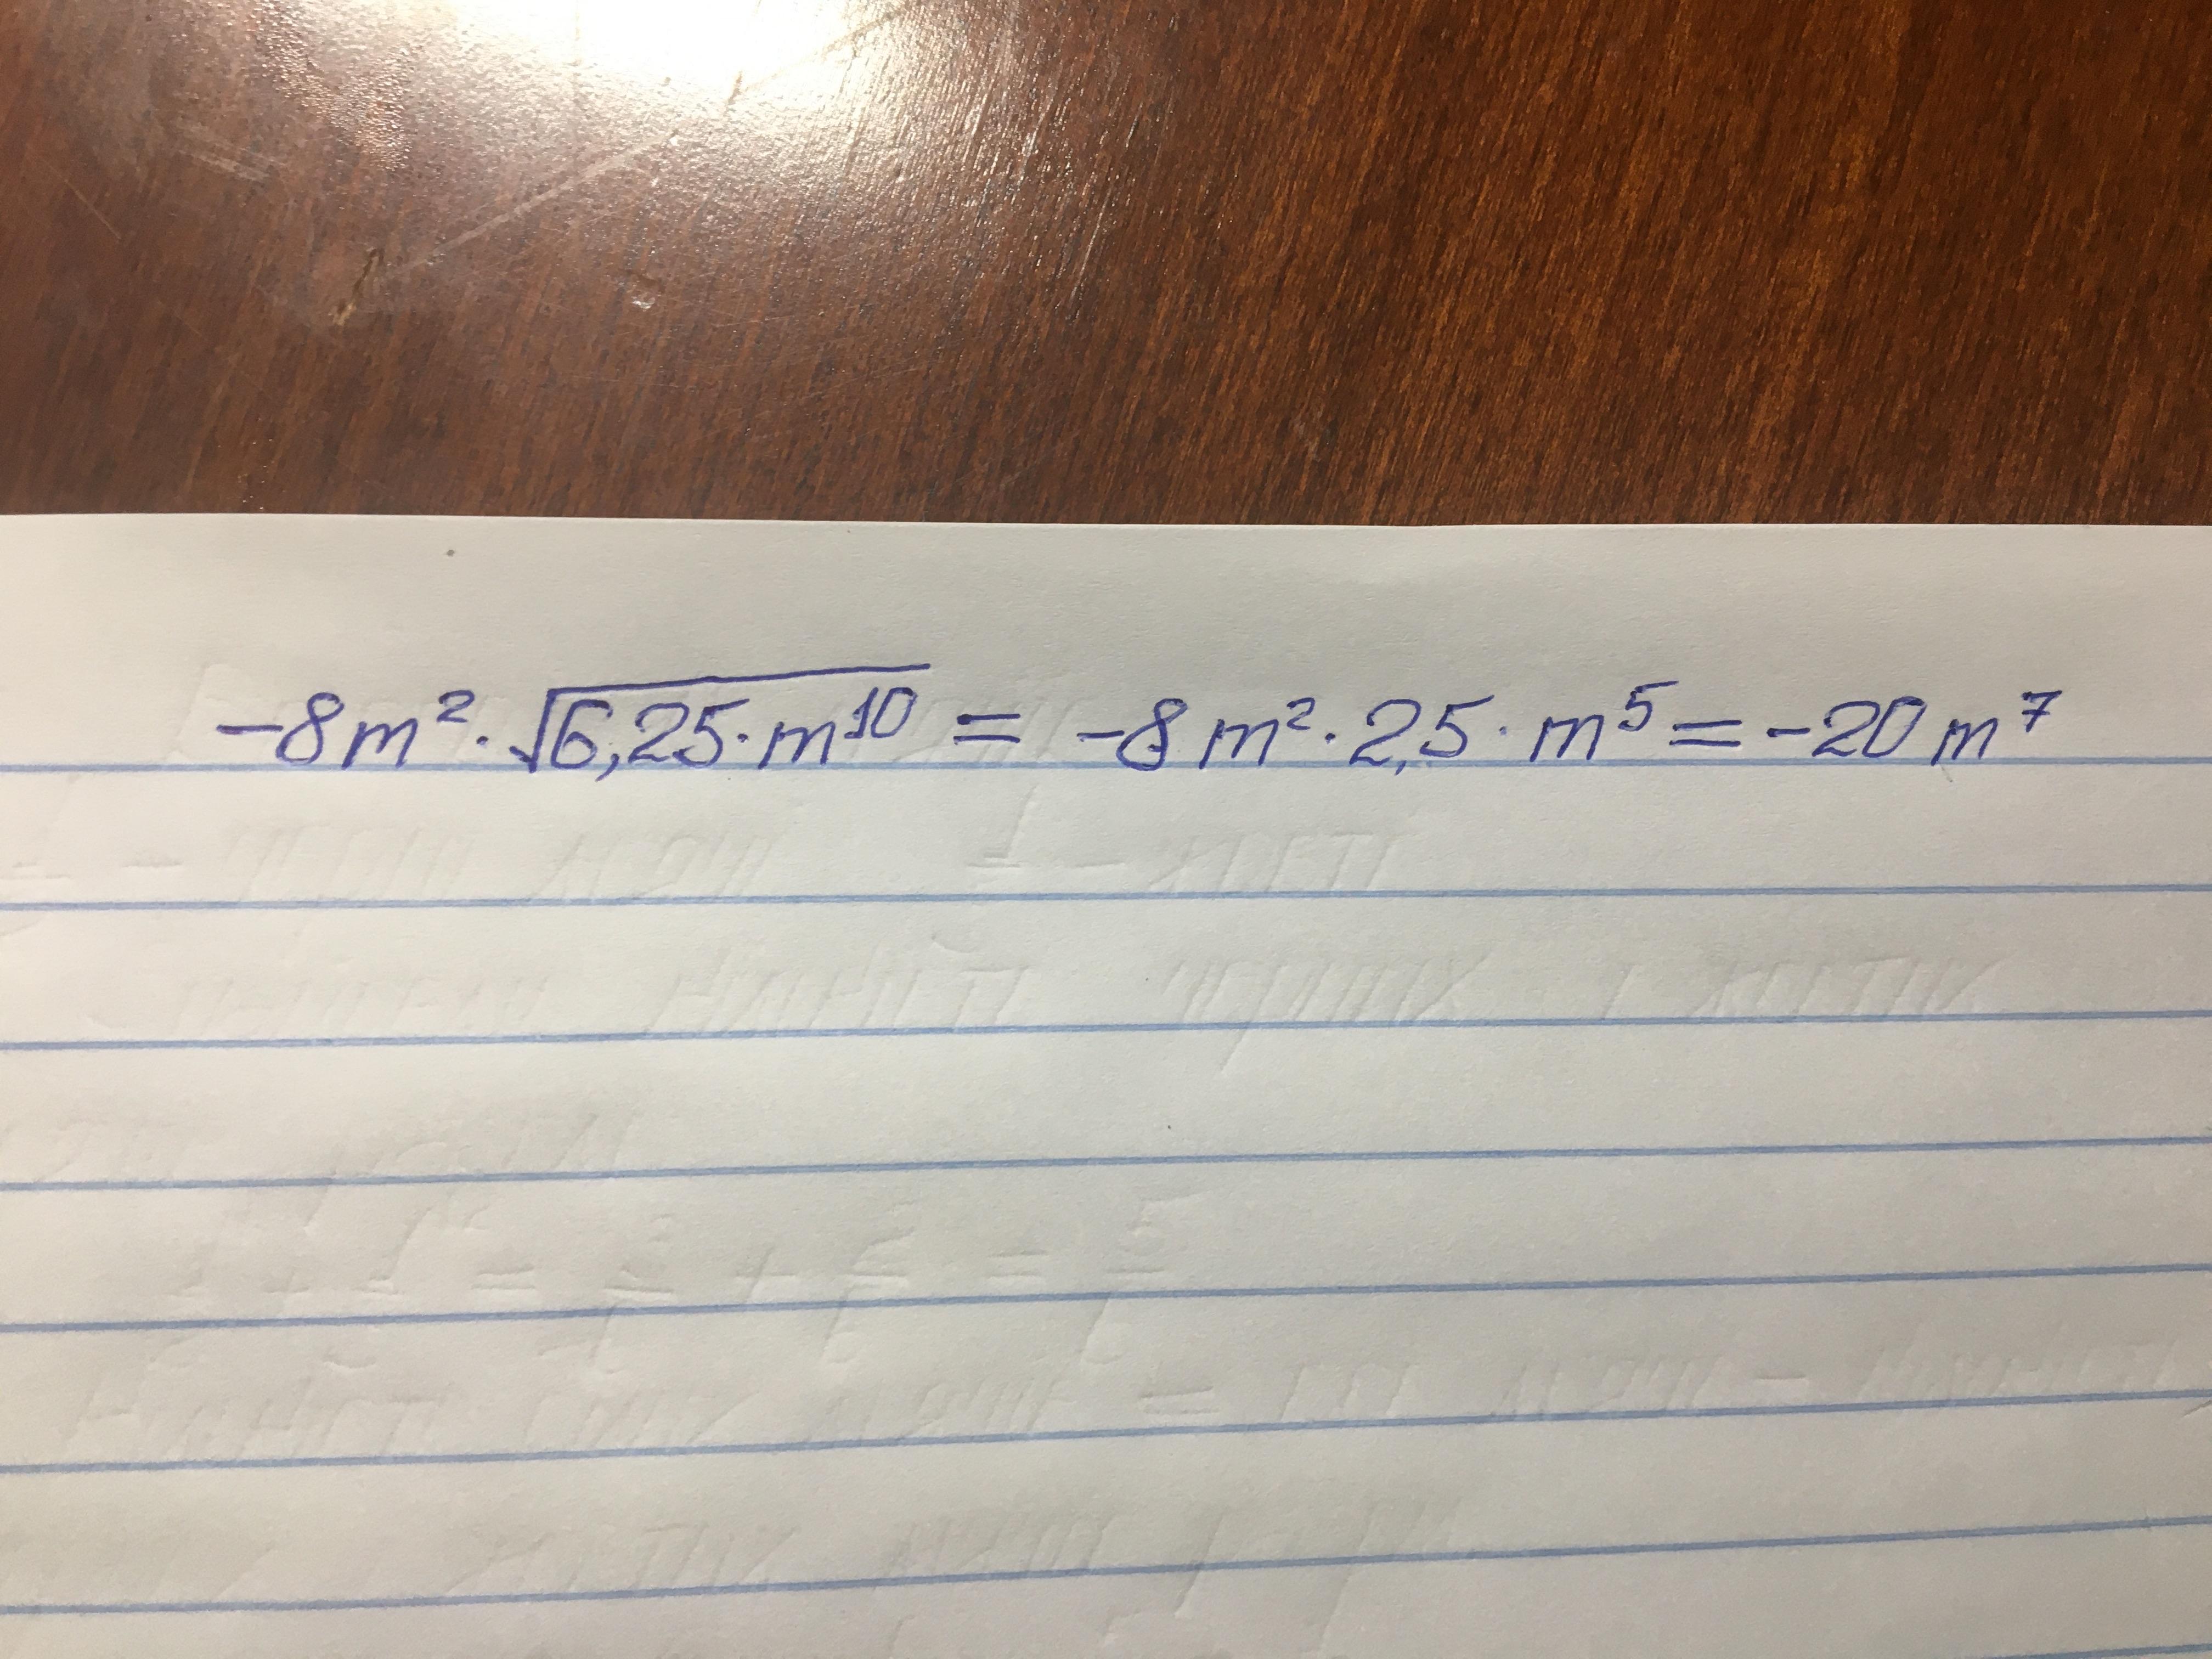 -8m² · √6,25 · m¹⁰ = -8m² · 2,5 · m⁵ = -20m⁷